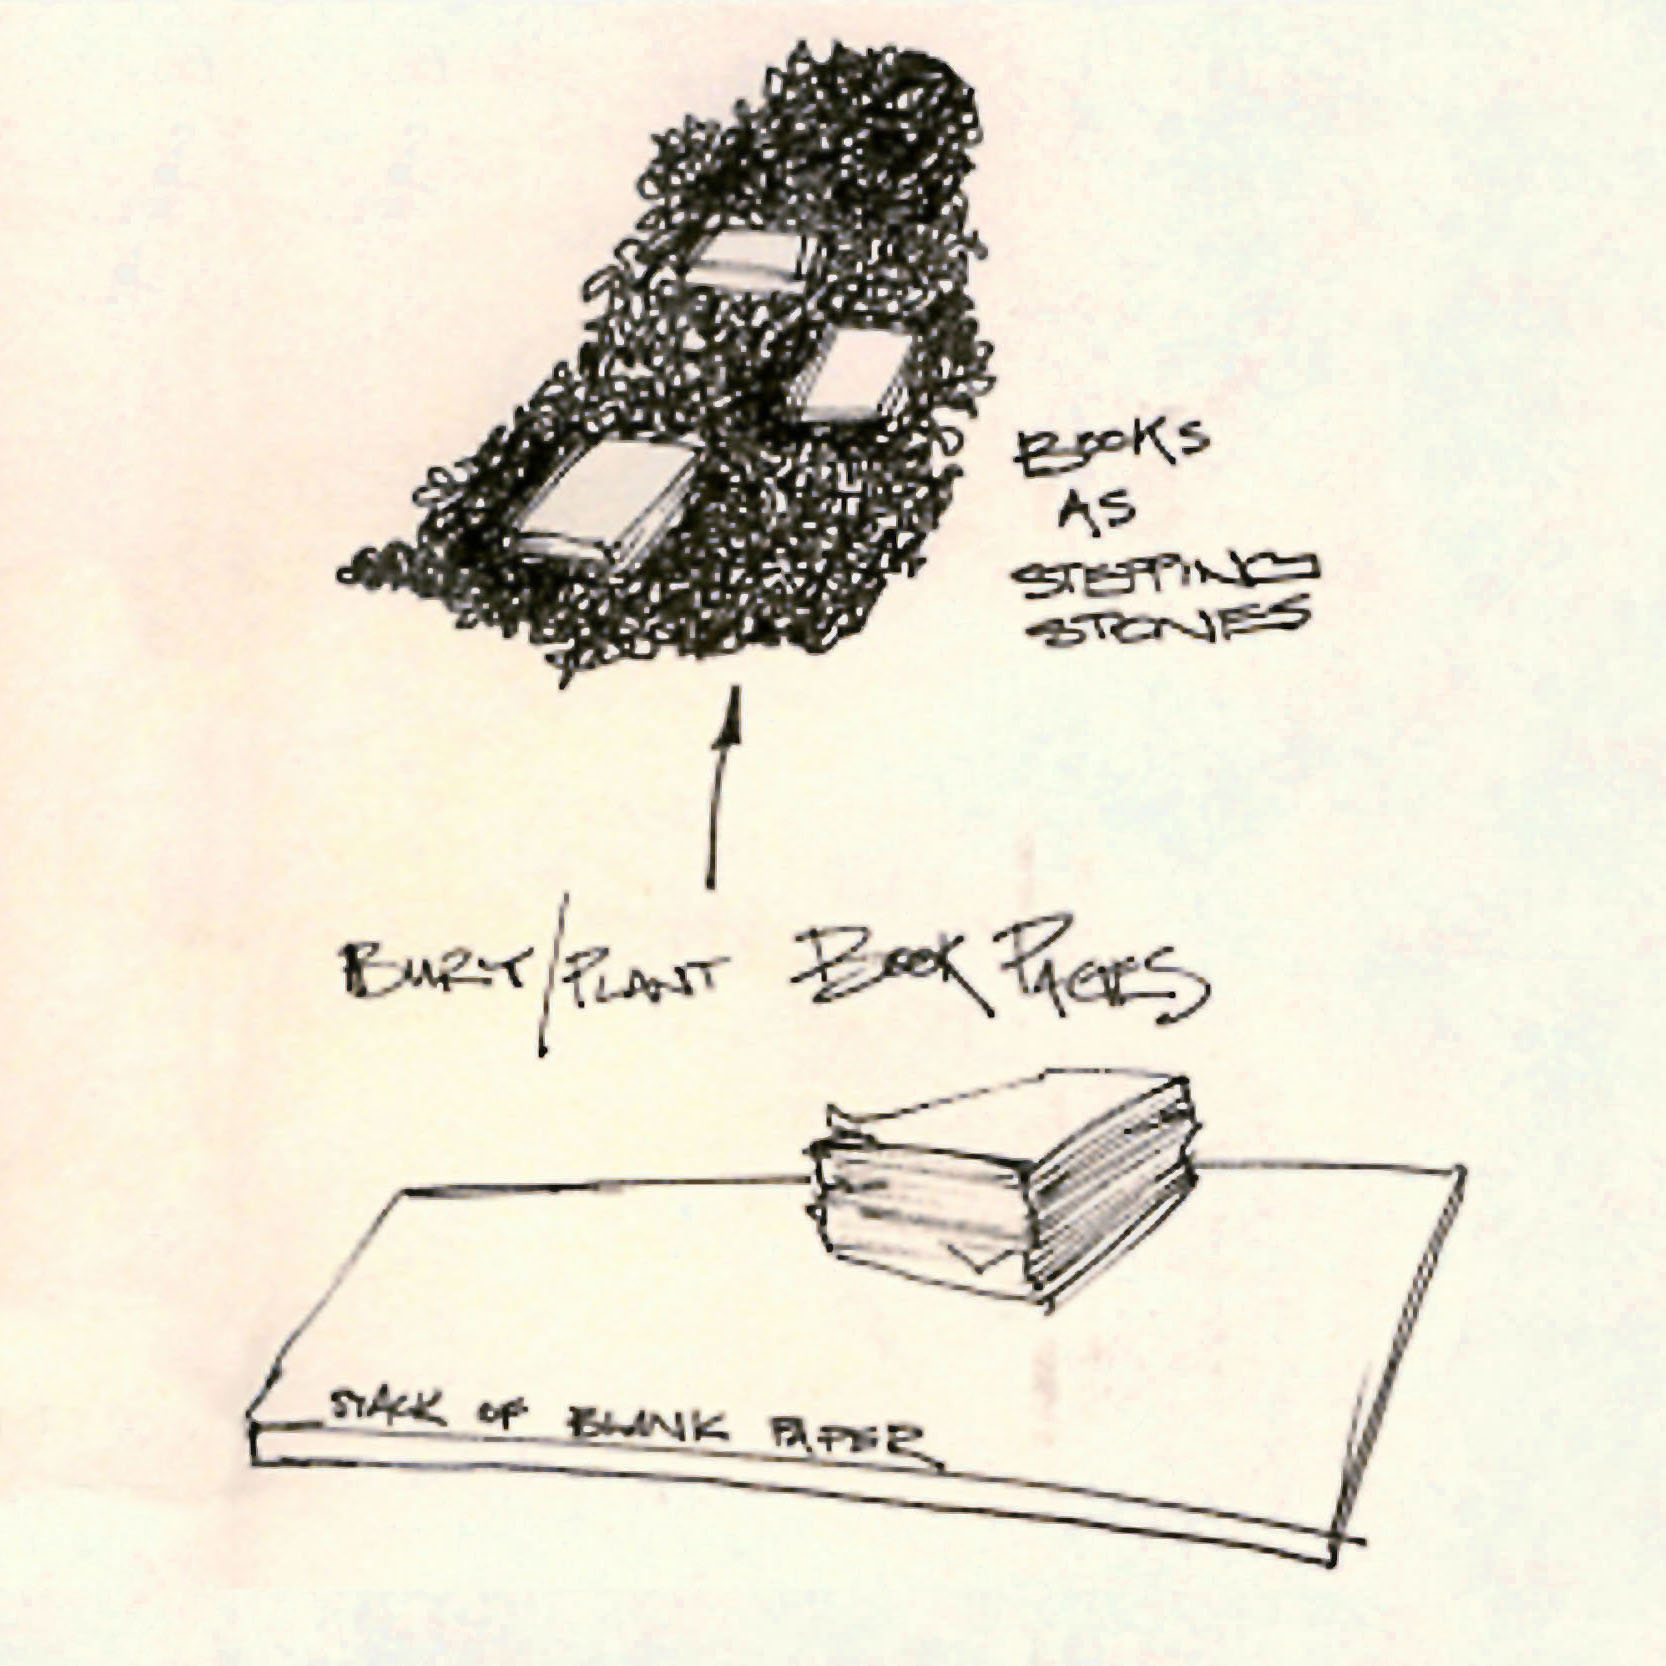 BOOKS
AS
STEPPING
STONES
BURY/PLANT BOOK PAGES
STACK OF BLANK PAPER